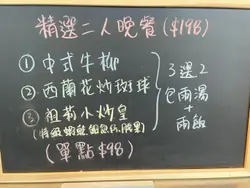 精選二人晚餐($198)
①中式牛柳
②西蘭花炒斑球
③祖莉小炒皇
(單點$98)
3選2
包兩湯
+
兩飯